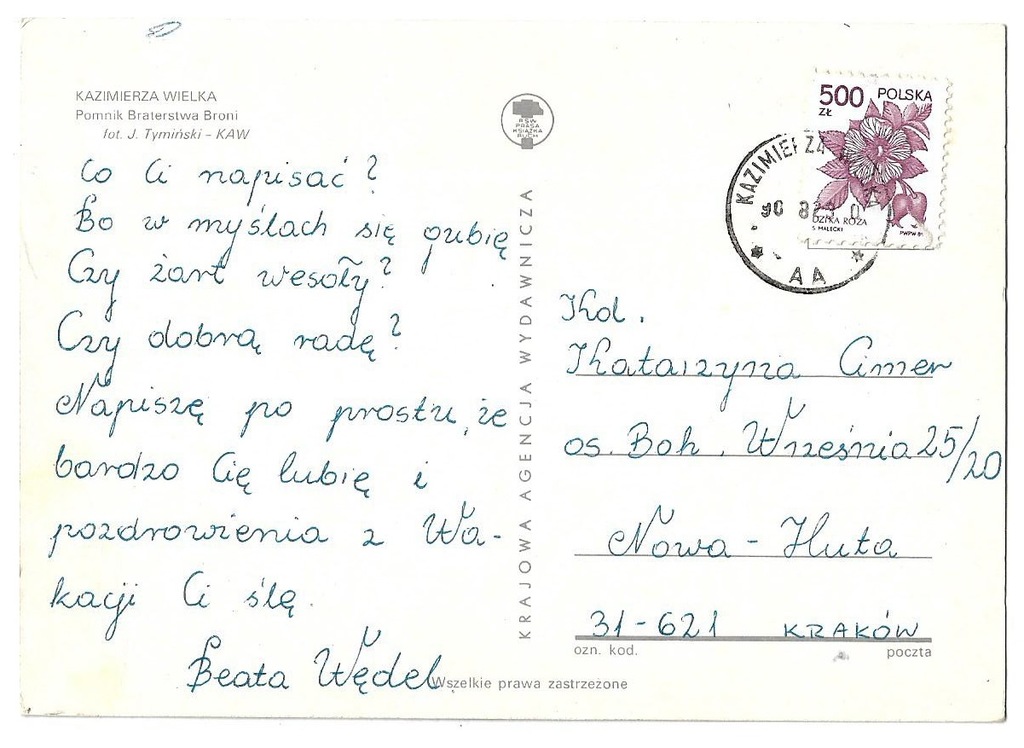 KAZIMIERZA WIELKA
Pomnik Braterstwa Broni
fot. J. Tymiński – KAW
Co Ci napisać?
Bo w myślach się gubię
Czy żart wesoły?
Czy dobrą radę?
Napiszę po prostu, że
bardzo Cię lubię i
pozdrowienia z Wa-
kacji Ci ślę.
Beata Wędel
RSW
PRASA
KSIĄŻKA
RUCH
KRAJOWA AGENCJA WYDAWNICZA
Wszelkie prawa zastrzeżone
500 POLSKA
ZŁ
DZIKA RÓŻA
S. MAŁECKI
PWPW 89
KAZIMIERZA
90 8
AA
Kol.
Katarzyna Cimer
os. Boh. Września 25/20
Nowa - Huta
31-621 KRAKÓW
ozn. kod. poczta